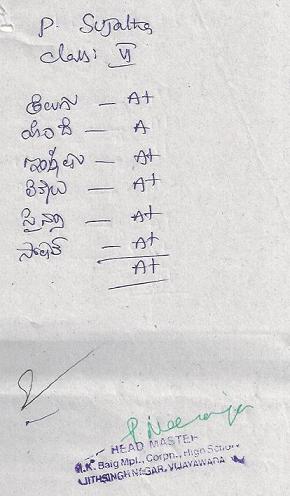 P. Sujatha
Class: VI
తెలుగు — A+
హిందీ — A
ఇంగ్లీషు — A+
లెక్కలు — A+
సైన్సు — A+
సోషల్ — A+
A+
HEAD MASTER
M.K. Baig Mpl., Corpn., High School
AJITHSINGH NAGAR, VIJAYAWADA